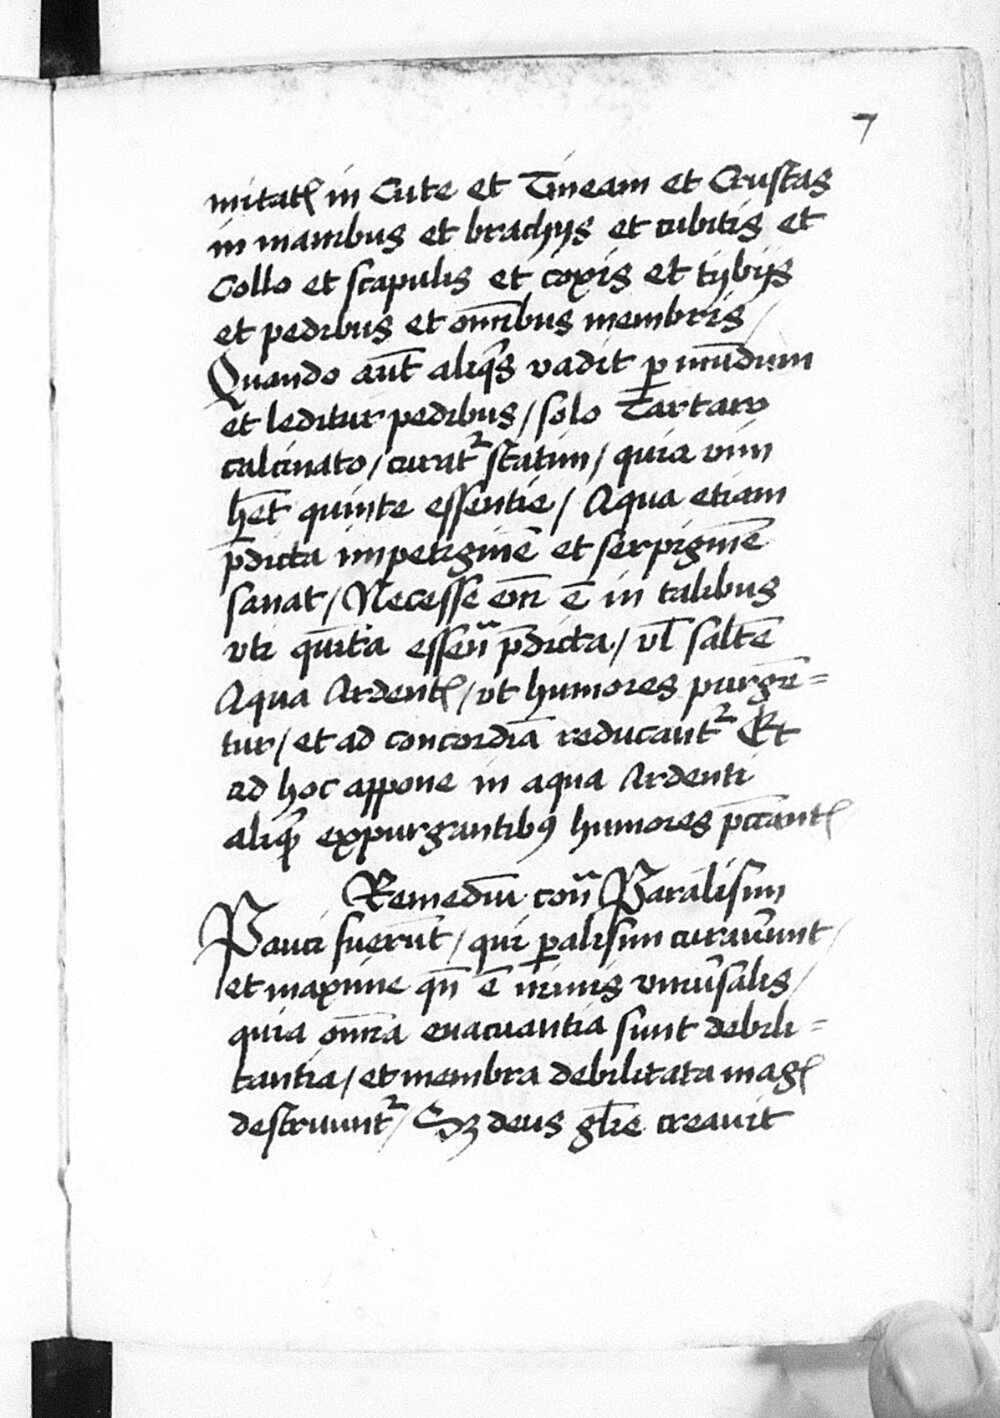 7
mitatꝭ in Cute et Tineam et Crustas
in manibus et brachijs et cubitis et
Collo et scapulis et coxis et tybijs
et pedibus et om̅ibus membris /
Quando aut̅ aliq̅s vadit ꝑ mu̅dum
et leditur pedibus / solo Tartaro
calcinato / curat᷑ statim / quia vim
h̅et quinte essentie / Aqua etiam
p̅dicta impetigine̅ et serpigine̅
sanat / Necesse em̅ e̅ in talibus
vti qui̅ta essen̅ p̅dicta / vl̅ salte̅
Aqua Ardentꝭ / vt humores purge̅=
tur / et ad concordia̅ reducant᷑ Et
ad hoc appone in aqua Ardenti
aliq̅ expurgantibꝰ humores pcca̅ntꝭ
Remediu̅ con̅ Paralisim
Pauci fueru̅t / qui ꝑalisim curaue̅unt /
et maxime qn̅ e̅ nimis vniu̅salis /
quia om̅ia euacuantia sunt debili=
tantia / et membra debilitata magꝭ
destruunt᷑ / Sꝫ deus gl̅ie creauit